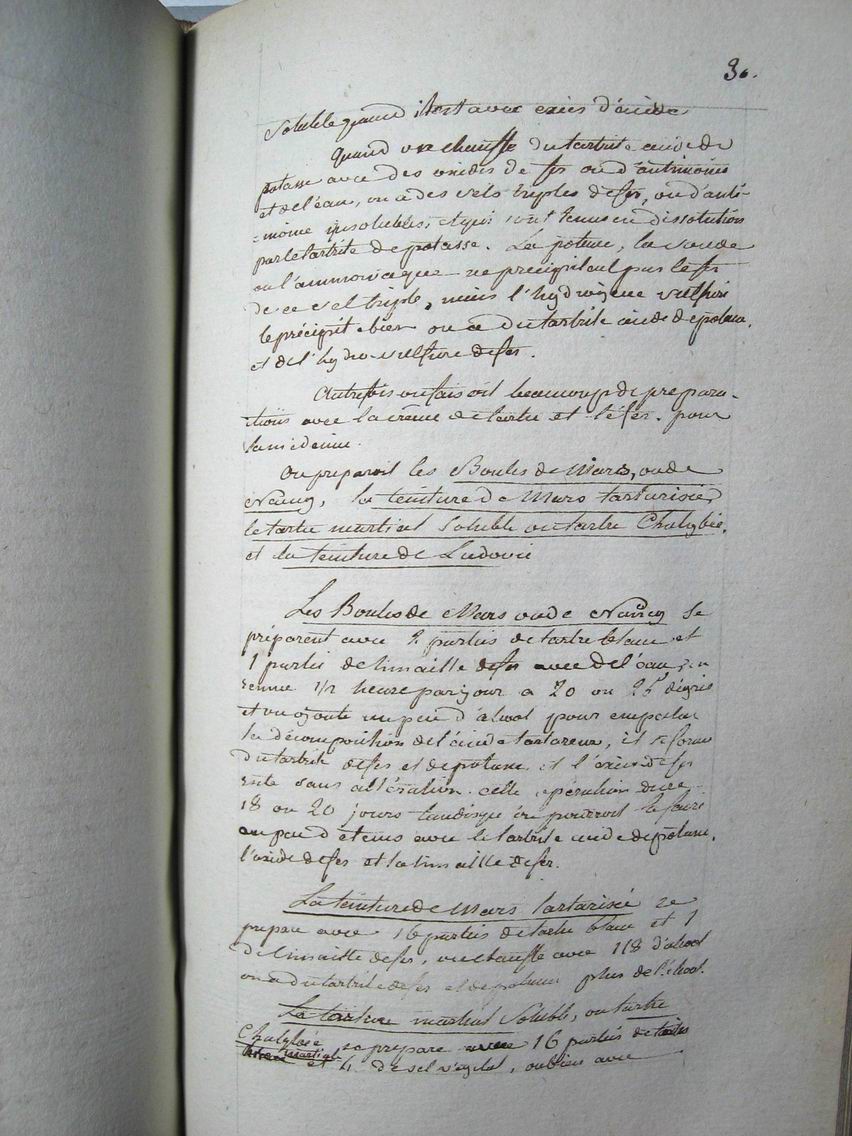 30.
Soluble quand il est avec excès d'acide.
Quand on chauffe du tartrite acide de
potasse avec des oxides de fer ou d'antimoine
et de l'eau, on a des sels triples de fer, ou d'anti-
-moine insolubles, et qui sont tenus en dissolution
par le tartrite de potasse. La potasse, la soude
ou l'ammoniaque ne précipitent pas le fer
de ce sel triple, mais l'hydrogene sulfuré
le précipite bien on a du tartrite acide de potasse,
et de l'hydro-sulfure de fer.
Autrefois on faisoit beaucoup de prepara-
-tions avec la crême de tartre et le fer. pour
la médecine.
On preparoit les Boules de Mars, ou de
Nancy, la teinture de Mars tartarisée,
le tartre martial soluble ou tartre Chalybée,
et la teinture de Ludovic
Les Boules de Mars ou de Nancy se
préparent avec 2 parties de tartre blanc et
1 partie de limaille de fer avec de l'eau, on
remue 1/2 heure par jour a 20 ou 25 dégrés
et on ajoute un peu d'alcool pour empecher
la décomposition de l'acide tartareux, il se forme
du tartrite de fer et de potasse et l'oxide de fer
reste sans altération. cette opération dure
18 ou 20 jours tandisque on pourroit le faire
en peu de tems avec le tartrite acide de potasse,
l'oxide de fer et la limaille de fer.
La teinture de Mars tartarisée se
prepare avec 16 parties de tartre blanc et 1
de limaille de fer, on chauffe avec 1/8 d'alcool
on a du tartrite de fer et de potasse plus de l'alcool.
La teinture martial Soluble, ou tartre
Chalybée se prepare avec 16 parties de tartre
martial et 4 de sel végétal, ou bien avec